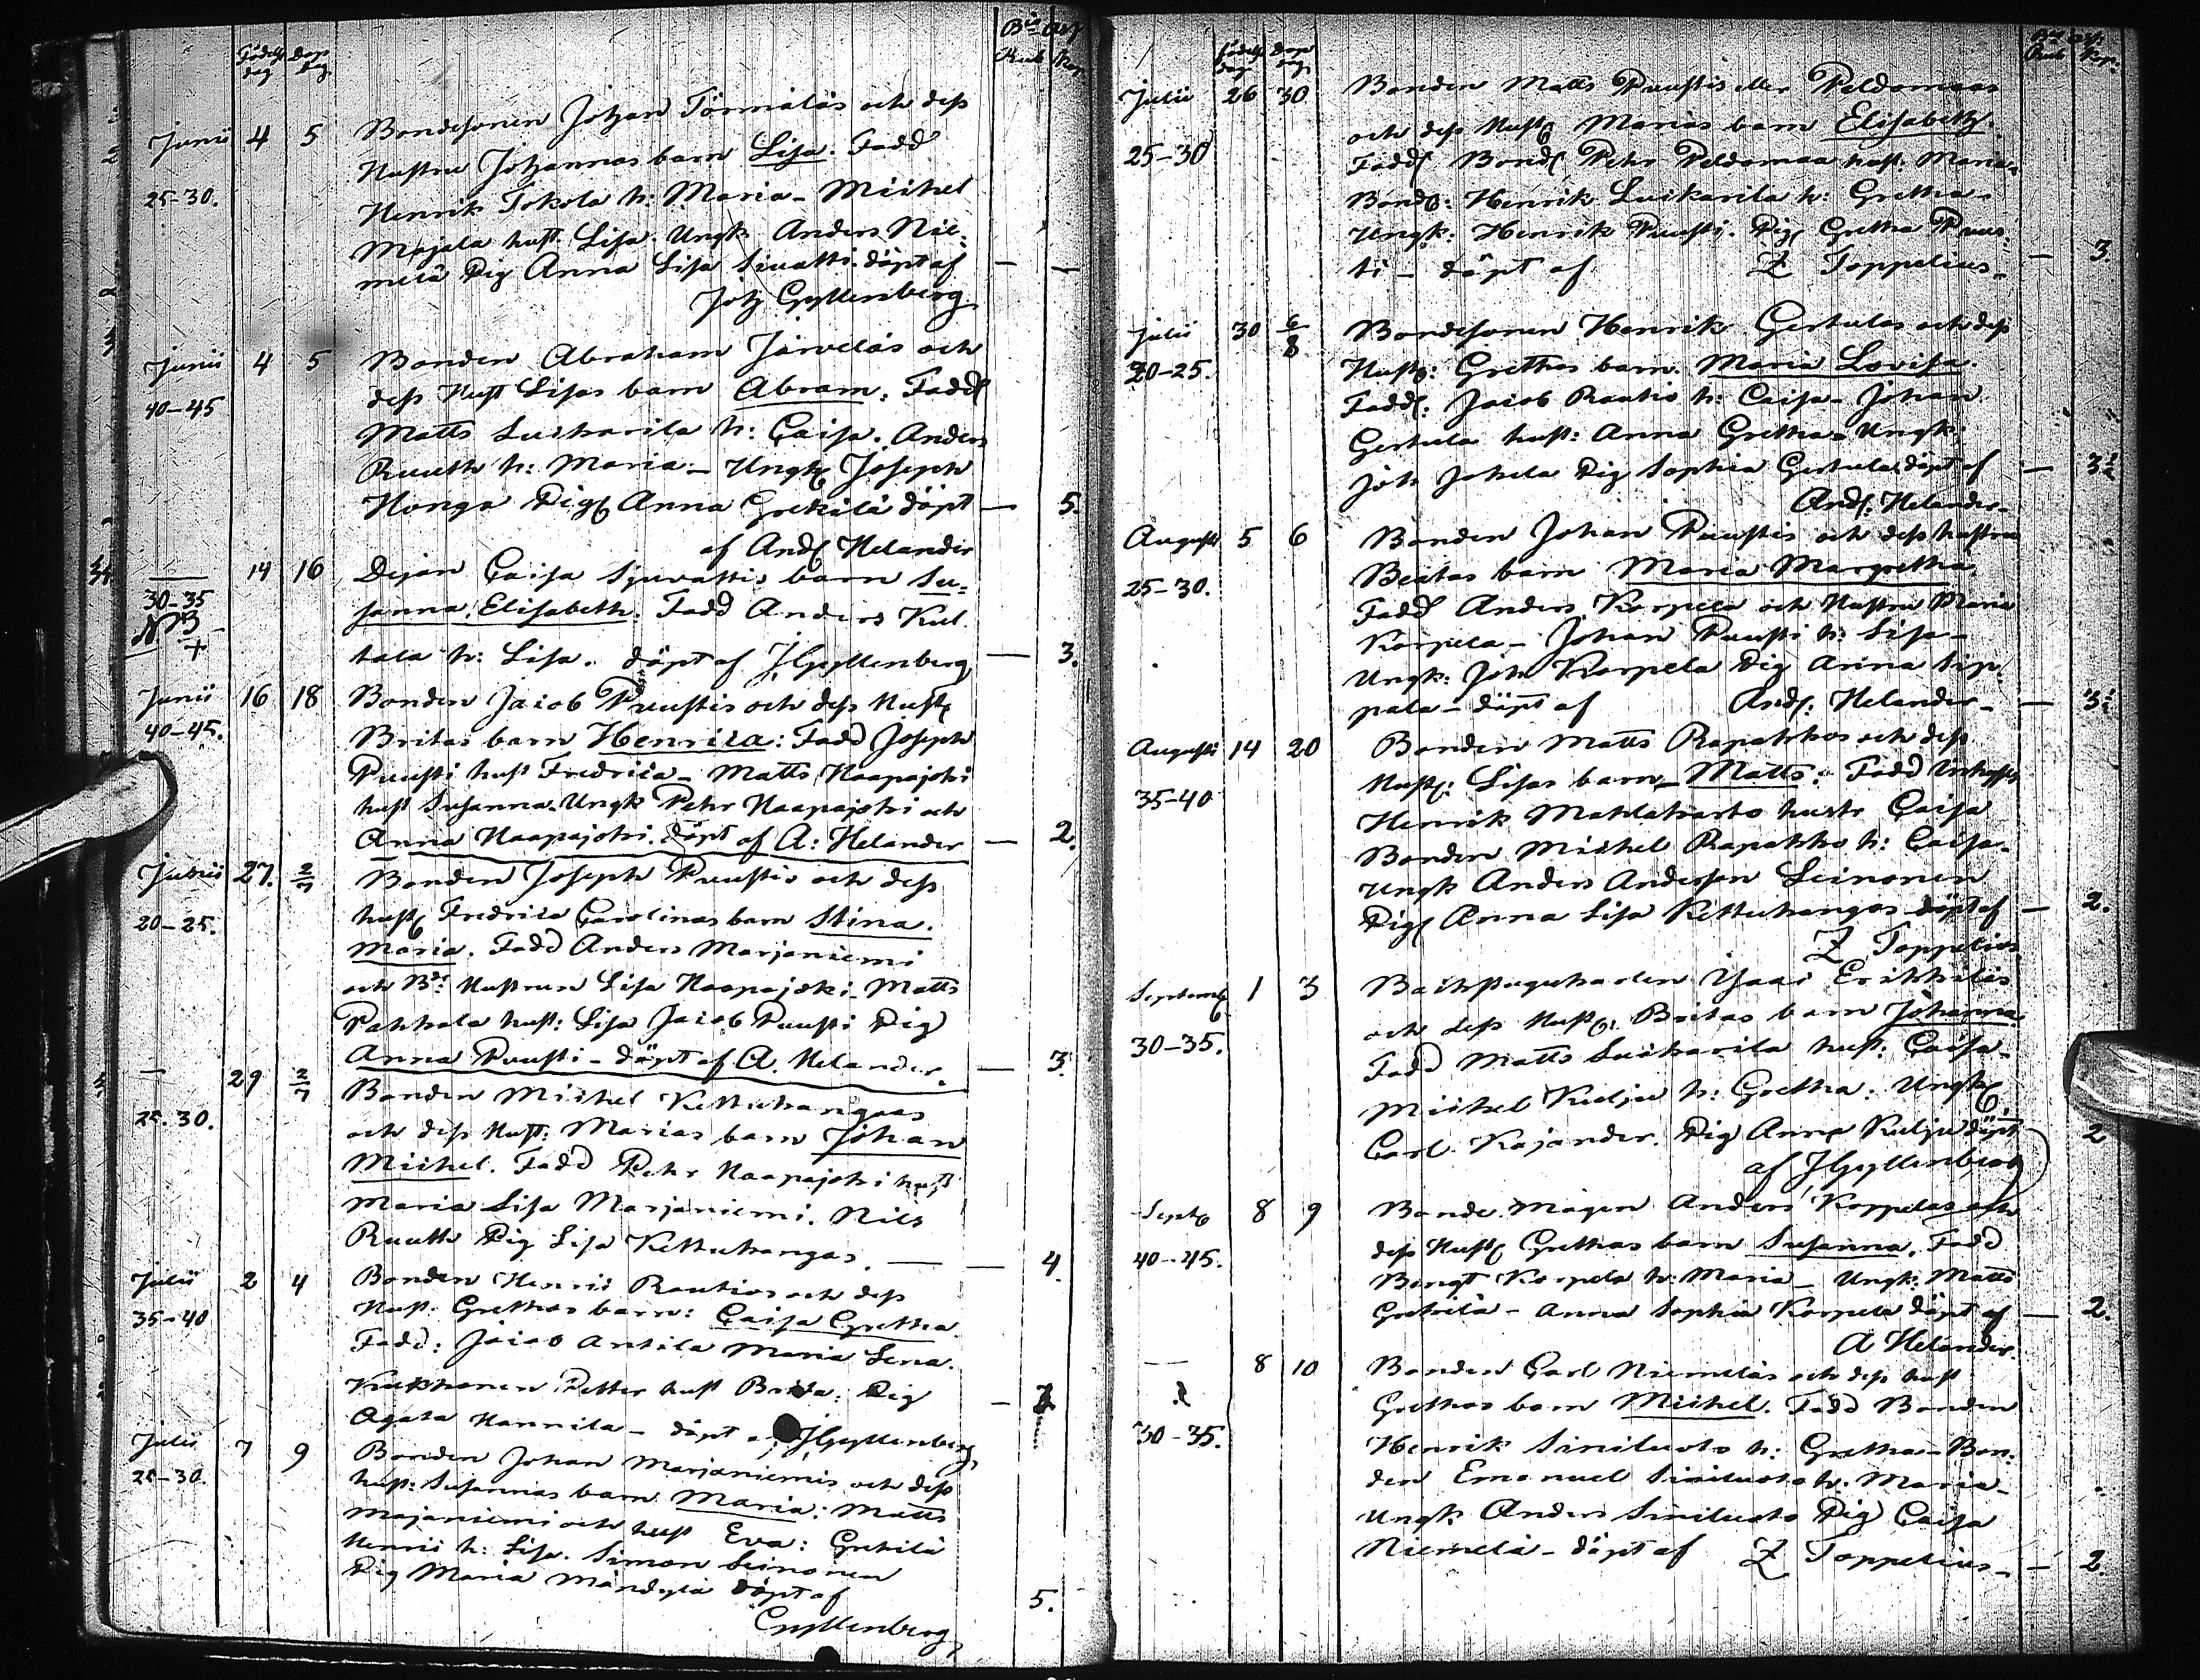 Födelse dag Dop Dag
Junii 4 5 Bondesonen Johan Törmäläs och dess
Hustru Johannas barn Lisa. Fadd
25-30. Henrik Tokola h: Maria - Michel
Majala hust. Lisa. Ungk Anders Nie-
melä Pig Anna Lisa Siuatti. döpt af — —
Joh Gyllenberg
Junii 4 5 Bonden Abraham Järveläs och
40-45 dess Hust Lisas barn Abram. Fadd
Matts Luikarila h: Caisa. Anders
Ruuth h: Maria - Ungk Joseph
Honga Pig Anna Grekilä döpt — 5.
af And Helander
— 14 16 Dejan Caisa Sjuvattis barn Su-
30-35 sanna, Elisabeth. Fadd Anders Kul
N 3 +
tala h: Lisa. döpt af J Gyllenberg — 3.
Junii 16 18 Bonden Jacob Puustis och dess Hust
40-45. Britas barn Henrica: Fadd Joseph
Puusti hust Fredrica - Matts Haapajoki
hust Susanna. Ungk Pehr Haapajoki och
Anna Haapajoki. döpt af A: Helander — 2.
Junii 27. 2/7 Bonden Joseph Puustis och dess
20-25. hust Fredrica Carolinas barn Stina.
Maria. Fadd Anders Marjaniemi
och Bds Hustrun Lisa Haapajoki - Matts
Pahkala hust: Lisa Jacob Puusti Pig
Anna Puusti - döpt af A. Helander. — 3.
— 29 2/7 Bonden Michel Kettuhangaas
25.30. och dess Hust: Marias barn Johan
Michel. Fadd Pehr Haapajoki hust
Maria Lisa Marjaniemi. Nils
Ruuth Pig Lisa Kettuhangas. — 4.
Julii 2 4 Bonden Henric Rautios och dess
35-40 Hust. Grethas barn: Caisa Gretha.
Fadd: Jacob Antila Maria Lena.
Kukkonen Petter hust Brita: Pig —
Agata Hannila - döpt a J Gyllenberg
Julii 7 9 Bonden Johan Marjaniemis och dess
25-30. hust: Susannas barn Maria: Matts
Majaniemi och hust Eva: Grekilä
Henric h: Lisa. Simon Leinonen
Pig Maria Mändylä döpt af 5.
Gyllenberg
Julii 26 30 Bonden Matts Puustis eller Peldomaas
och dess Hust Marias barn Elisabeth.
25-30 Fadd Bond Pehr Peldomaa hust. Maria
Bond: Henrik Luikarila h: Gretha -
Ungk: Henrik Puusti. Pig Gretha Puus-
ti - döpt af Z Toppelius - — 3
Julii 30 6/8 Bondesonen Henrik Gertulas och dess
20-25. Hust: Grethas barn. Maria Lovisa.
Fadd: Jacob Rautio h: Caisa - Johan
Gertula hust: Anna Gretha - Ungk:
Joh Jokela Pig Sophia Gertula. döpt af — 3½
And. Helander.
Augusti 5 6 Bonden Johan Puustis och dess hustru
25-30. Beatas barn Maria Margretha.
Fadd Anders Korpela och Hustru Maria
Korpela - Johan Puusti h: Lisa -
Ungk: Joh Korpela Pig Anna Sip-
pala - döpt af And. Helander - — 3½
Augusti 14 20 Bonden Matts Rapakkos och dess
Hust: Lisas barn - Matts: Fadd
35-40 Henrik Mahlakarto hustr Caisa
Bonden Michel Rapakko h: Caisa -
Ungk Anders Anderson Leinonen
Pig Anna Lisa Kettuhangas döpt af — 2.
Z Toppelius
Septemb 1 3 Backstugukarlen Isaac Erikkiläs
och dess Hust: Britas barn Johanna
30-35. Fadd Matts Luikarila hust: Caisa -
Michel Kulju h: Gretha: Ungk
Carl Kajander. Pig Anna Kulju döpt 2
af J Gyllenberg
Septb 8 9 Bonde Mågen Anders Korpelas och
dess Hust Grethas barn Susanna. Fadd
40-45. Bengt Korpela h: Maria - Ungk: Matts
Grekelä - Anna Sophia Korpela döpt af — 2.
A Helander.
— 8 10 Bonden Carl Niemeläs och dess hust
Grethas barn Michel. Fadd Bonden
30-35. Henrik Siniluoto h: Gretha - Bon-
den Emanuel Siniluoto h: Maria -
Ungk Anders Siniluoto Pig Caisa
Niemelä - döpt af Z Toppelius - — 2.